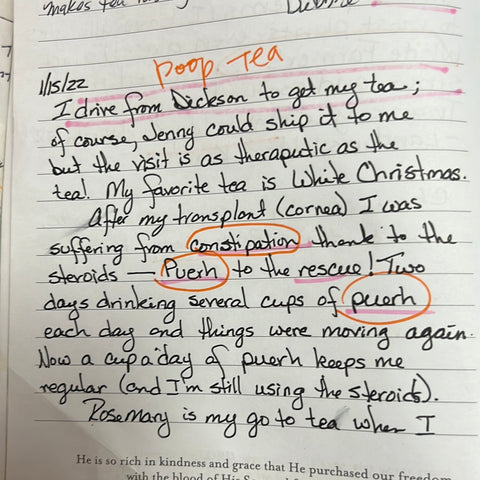 makes tea
poop tea
1/15/22
I drive from Dickson to get my tea;
of course, Jenny could ship it to me
but the visit is as theraputic as the
tea! My favorite tea is White Christmas.
After my transplant (cornea) I was
suffering from constipation thank to the
steroids — Puerh to the rescue! Two
days drinking several cups of puerh
each day and things were moving again.
Now a cup a day of puerh keeps me
regular (and I'm still using the steroids).
Rosemary is my go to tea when I
He is so rich in kindness and grace that He purchased our freedom
with the blood of His S